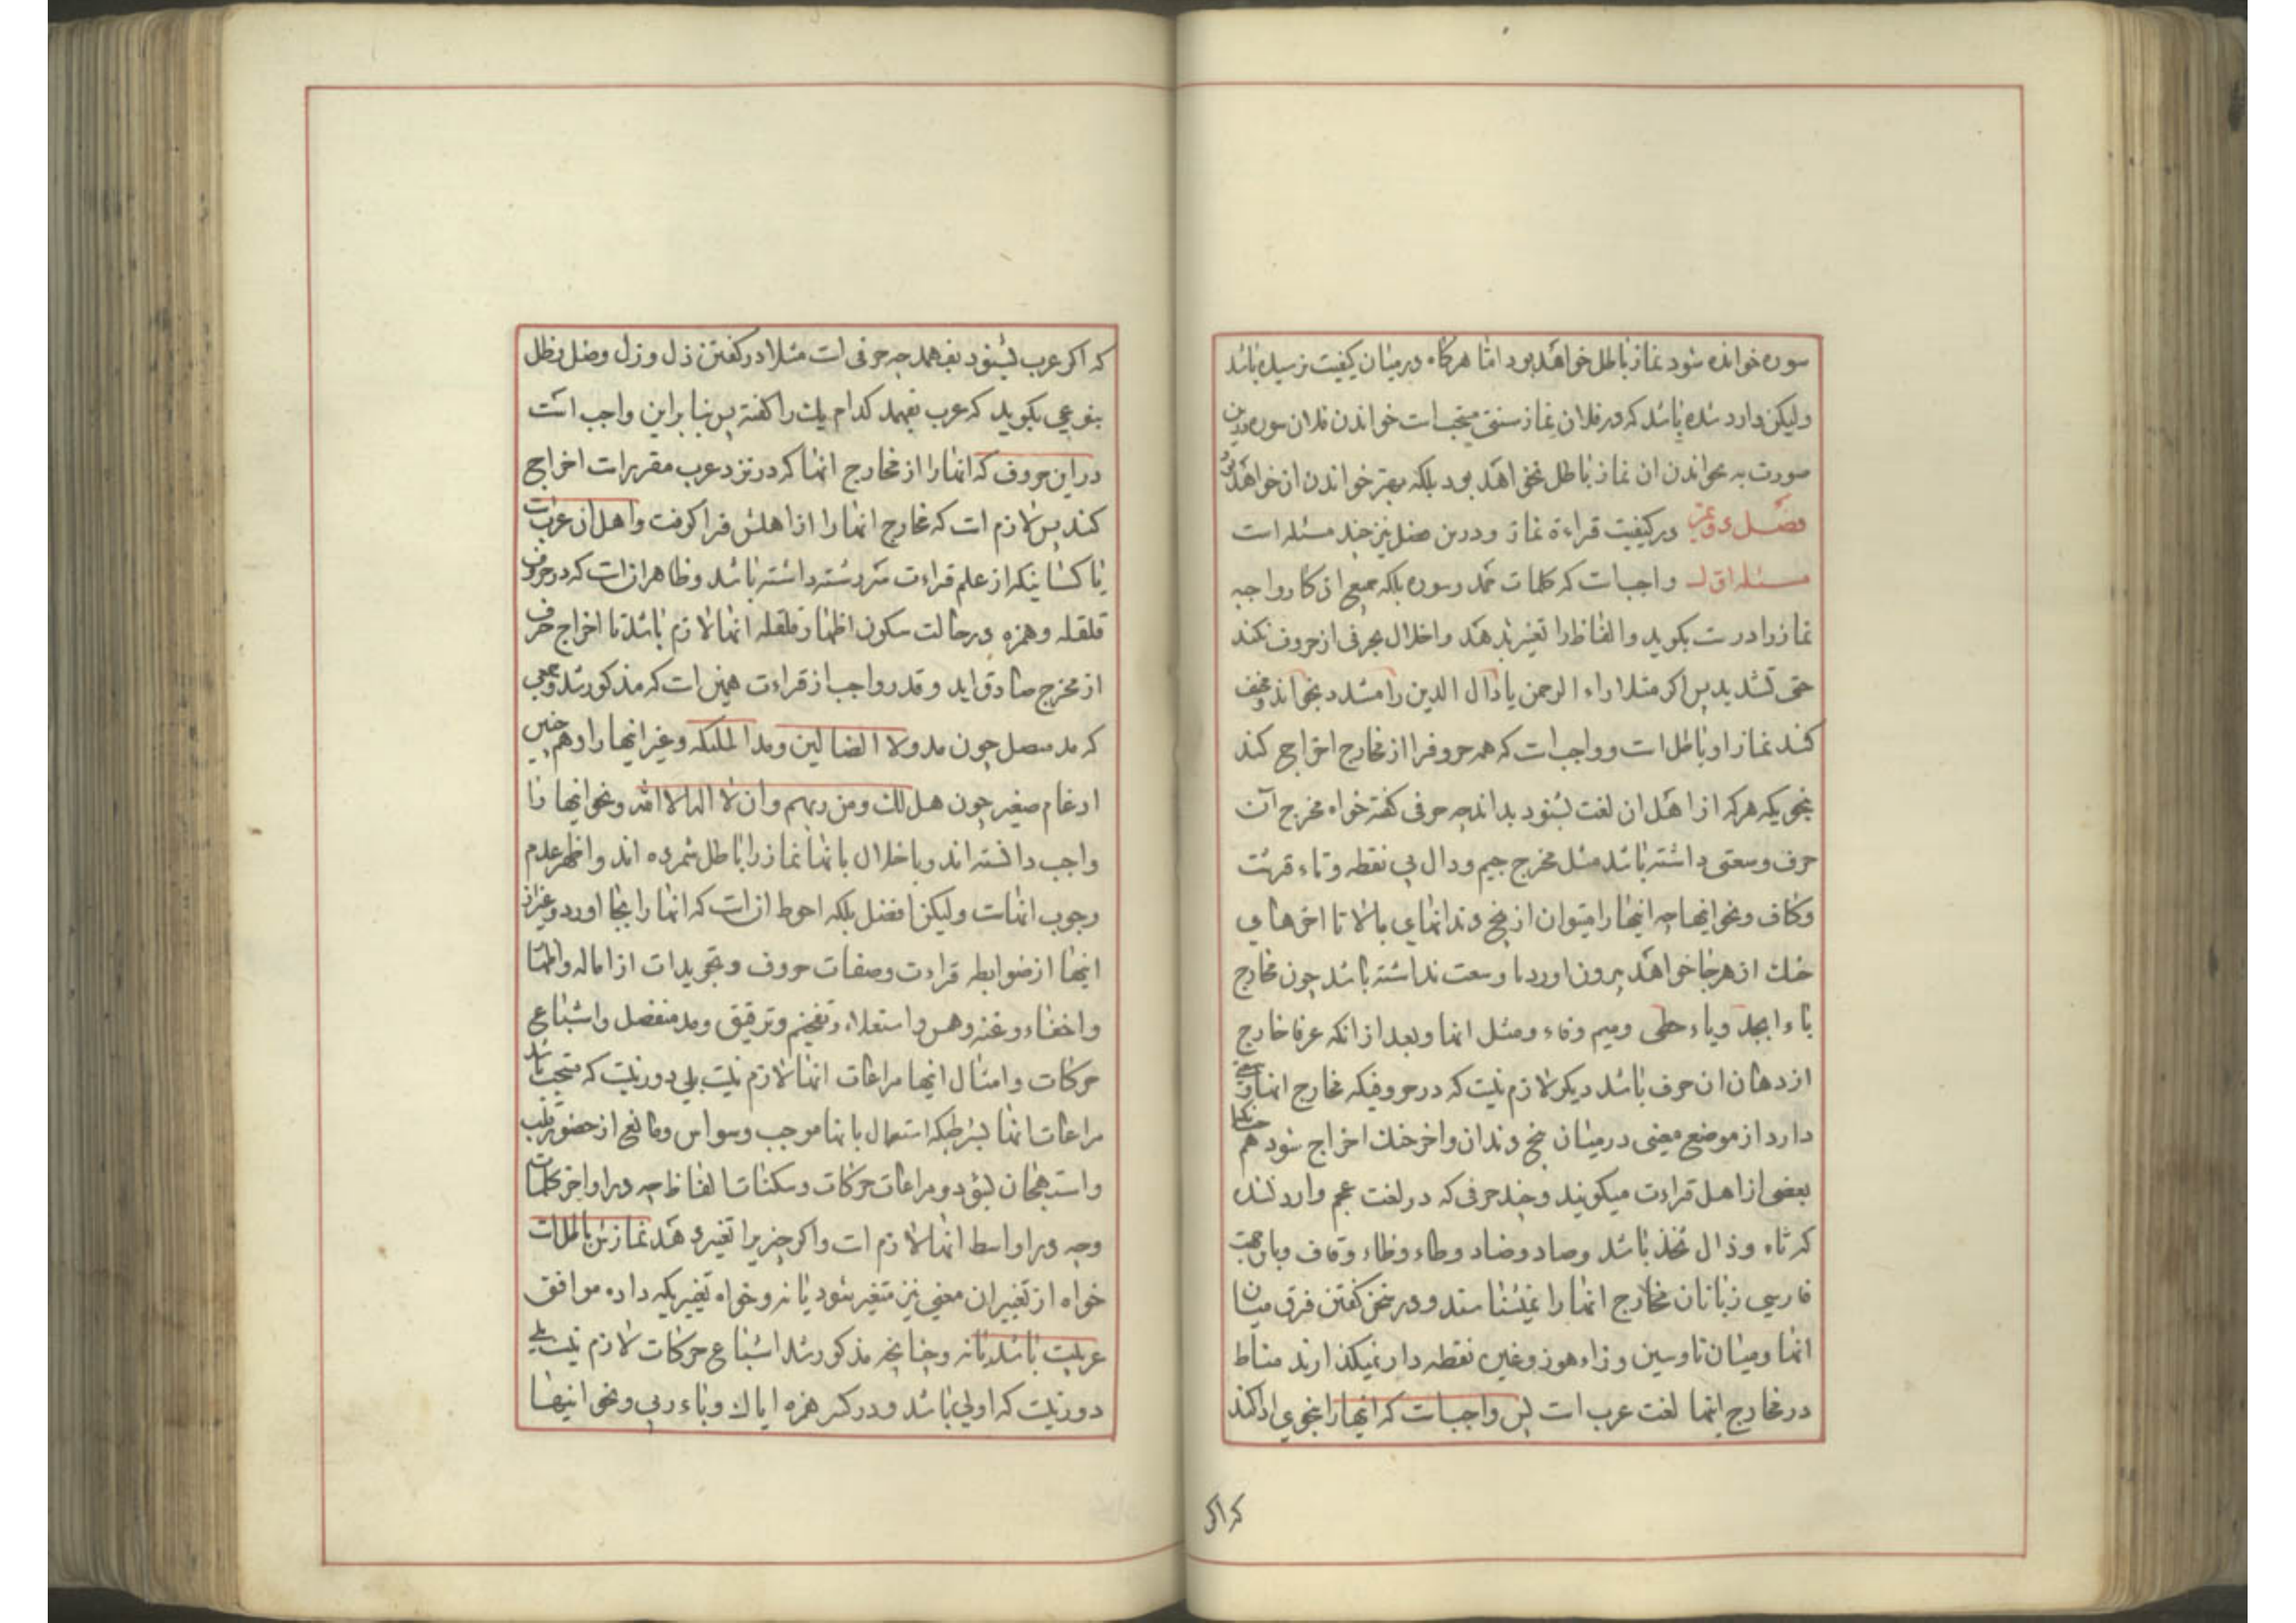 سوره خوانده شود نماز باطل خواهد بود اما هرکاه در میان کیفیت نرسیده باشد
ولیکن وارد شده باشد که در فلان نماز سنتی مستحب است خواندن فلان سوره درین
صورت به نخواندن ان نماز باطل نخواهد بود بلکه بهتر خواندن ان خواهد بود
فصل دویم در کیفیت قراءة نماز و در این فصل نیز چند مسئله است
مسئله اول واجب است که کلمات حمد وسوره بلکه جمیع اذکار واجبه
نماز را درست بکوید و الفاظ را تغییر ندهد و اخلال بحرفی از حروف نکند
حتی تشدید پس اکر مثلا راء الرحمن یا دال الدین را مشدد نخواند و مخفف
کند نماز او باطل است و واجب است که همه حروف را از مخارج اخراج کند
بنحویکه هرکه از اهل ان لغت بشنود بداند چه حرفی کفته خواه مخرج آن
حرف وسعتی داشته باشد مثل مخرج جیم و دال بی نقطه و تاء قرشت
وکاف و نحو اینها چه اینها را میتوان از بیخ دندانهای بالا تا اخرهای
خنک از هر جا خواهد بیرون اورد یا وسعت نداشته باشد چون مخارج
باء ابجد و یاء حطی و میم و فاء و مثل انها و بعد از انکه عرفا خارج
از دهان ان حرف باشد دیکر لازم نیست که در حروفیکه مخارج انها وسعتی
دارد از موضع معینی در میان بیخ دندان و اخر خنک اخراج شود هم چنانکه
بعضی از اهل قراءت میکویند و چند حرفی که در لغت عجم وارد نشده
که ثاء و ذال ثخذ باشد و صاد و ضاد و طاء و ظاء و قاف و باین جهت
فارسی زبانان مخارج انها را نمیشناسند و در سخن کفتن فرق میان
انها و میان تا و سین و زاء هوز و غین نقطه دار نمیکذارند مناط
در مخارج اینها لغت عرب است پس واجب است که اینها را بنحوی ادا کند
که اکر
که اکر عرب بشنود بفهمد چه حرفی است مثلا در کفتن ذل و زل وضل و ظل
بنوعی بکوید که عرب بفهمد کدام یک را کفته پس بنا براین واجب است
در این حروف که انها را از مخارج انها که در نزد عرب مقرر است اخراج
کند پس لازم است که مخارج انها را از اهلش فرا کرفت و اهل ان عرب است
یا کسانیکه از علم قراءت سررشته داشته باشد و ظاهر ان است که در حروف
قلقله و همزه در حالت سکون اظهار قلقله انها لازم باشد تا اخراج حرف
از مخرج صادق اید و قدر واجب از قراءت همین است که مذکور شد و جمعی
که مد متصل چون مد ولا الضالین و مد الملئکه و غیر اینها را و هم چنین
ادغام صغیر چون هل لک و من ربهم و ان لا اله الا الله و نحو اینها را
واجب دانسته اند و باخلال بانها نماز را باطل شمرده اند و اظهر عدم
وجوب انهاست ولیکن افضل بلکه احوط ان است که انها را بجا اورد و غیر از
اینها از ضوابط قراءت و صفات حروف و تجوید است از اماله و اظهار
و اخفاء و غنه و همس و استعلاء و تفخیم و ترقیق و مد منفصل و اشباع
حرکات و امثال اینها مراعات انها لازم نیست بلی دور نیست که مستحب باشد
مراعات انها بشرطیکه استعمال بانها موجب وسواس و مانع از حضور قلب
و استهجان نبود و مراعات حرکات و سکنات الفاظ چه در اواخر کلمات
و چه در اواسط انها لازم است و اکر چیزیرا تغییر دهد نمازش باطل است
خواه از تغییر ان معنی نیز متغیر شود یا نه و خواه تغییریکه داده موافق
عربیت باشد یا نه و چنانچه مذکور شد اشباع حرکات لازم نیست بلی
دور نیست که اولی باشد و در کسر همزه ایاک و باء ربی و نحو اینها